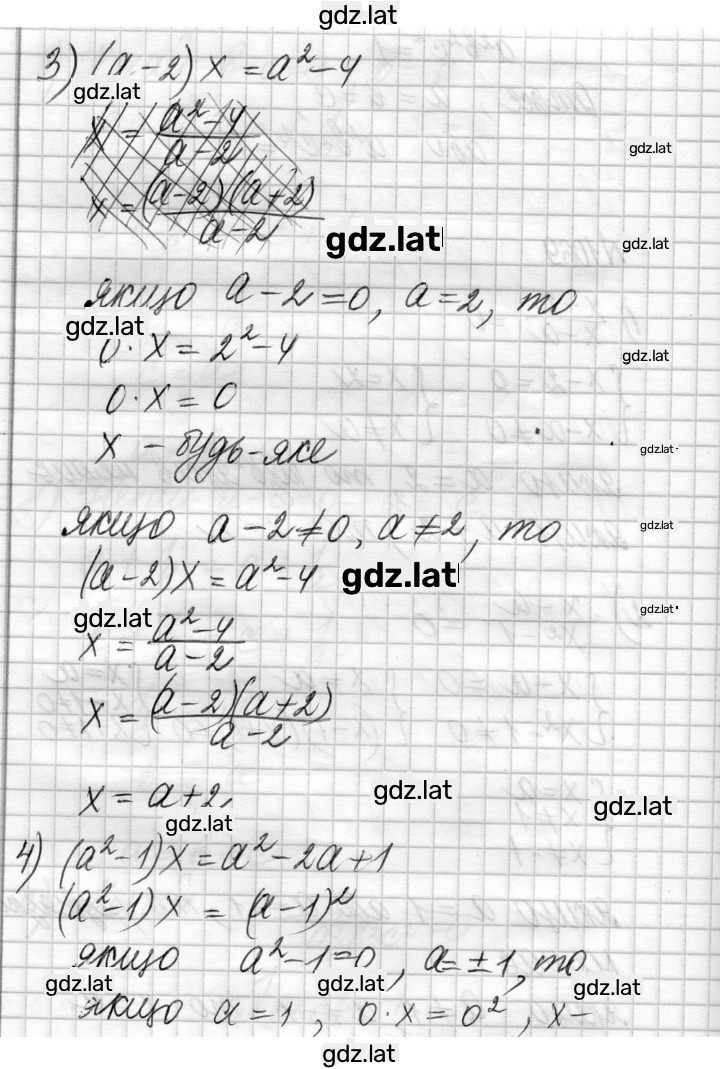 gdz.lat
3) (a-2)x = a²-4
gdz.lat
x = (a²-4)/(a-2)
gdz.lat
x = ((a-2)(a+2))/(a-2)
gdz.lat
gdz.lat
якщо a-2=0, a=2, то
gdz.lat
0·x = 2²-4
gdz.lat
0·x = 0
x - будь-яке
gdz.lat
якщо a-2≠0, a≠2, то
gdz.lat
(a-2)x = a²-4
gdz.lat
gdz.lat
gdz.lat
x = (a²-4)/(a-2)
x = ((a-2)(a+2))/(a-2)
x = a+2,
gdz.lat
gdz.lat
gdz.lat
4) (a²-1)x = a²-2a+1
(a²-1)x = (a-1)²
якщо a²-1=0, a=±1, то
gdz.lat
gdz.lat
gdz.lat
якщо a=1, 0·x=0², x-
gdz.lat